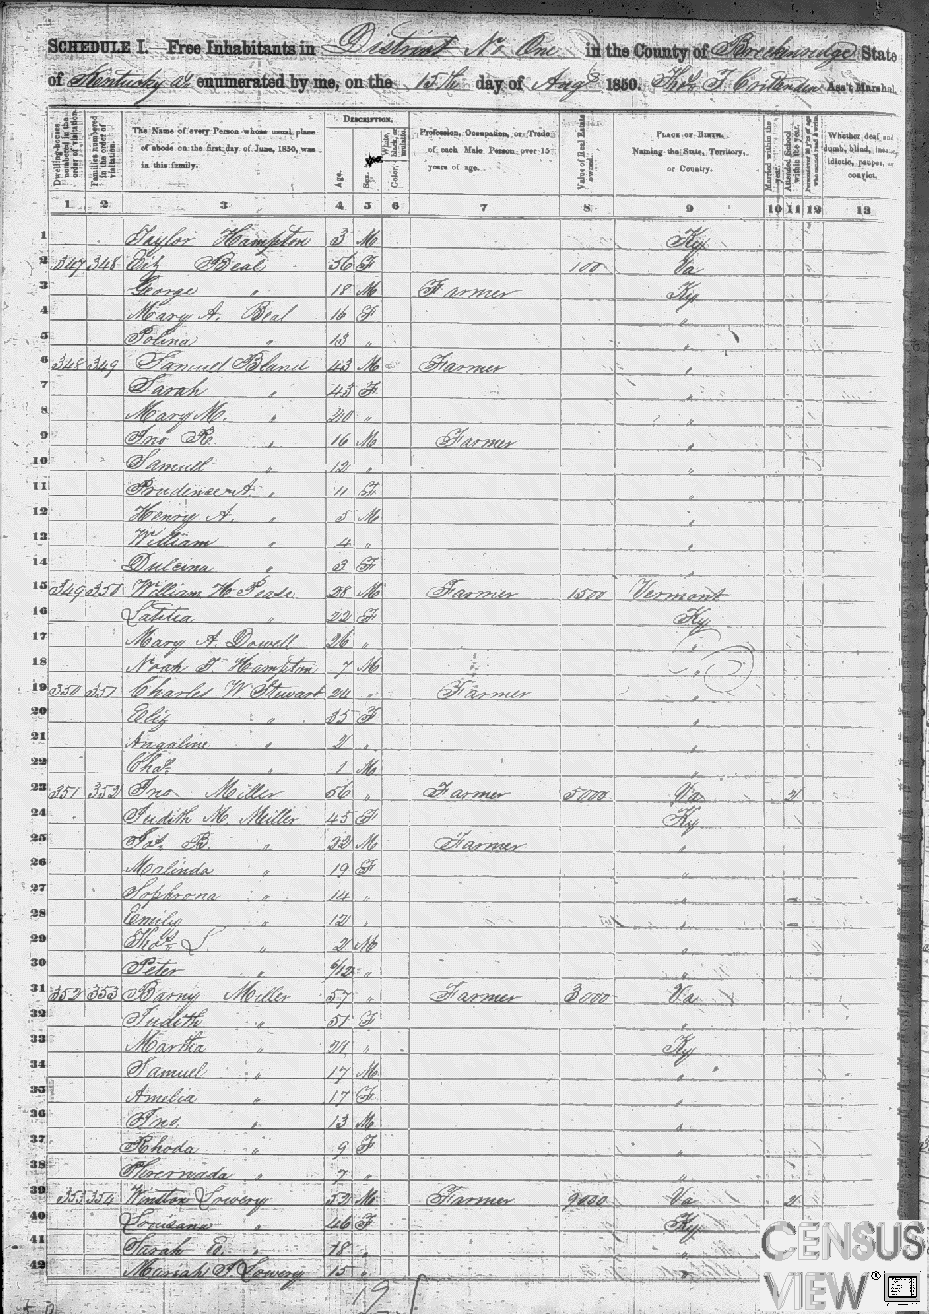 SCHEDULE I.—Free Inhabitants in District No One in the County of Breckenridge State
of Kentucky enumerated by me, on the 15th day of Augs 1850. Thos T Crittenden Ass't Marshal.
Dwelling-houses numbered in the order of visitation.
Families numbered in the order of visitation.
The Name of every Person whose usual place of abode on the first day of June, 1850, was in this family.
DESCRIPTION.
Age.
Sex.
White, black, or mulatto.
Color
Profession, Occupation, or Trade of each Male Person over 15 years of age.
Value of Real Estate owned.
PLACE OF BIRTH, Naming the State, Territory, or Country.
Married within the year.
Attended School within the year.
Whether deaf and dumb, blind, insane, idiotic, pauper, or convict.
1 2 3 4 5 6 7 8 9 10 11 12 13
1 Taylor Hampton 3 M Ky
2 347 348 Beal 56 F 100 Va
3 George " 18 M Farmer Ky
4 Mary A. Beal 16 F "
5 Polina " 13 " "
6 348 349 Samuel Bland 43 M Farmer "
7 Sarah " 45 F "
8 Mary M. " 20 " "
9 Jno R. " 16 M Farmer "
10 Samuel " 12 " "
11 Prudence A. " 11 F "
12 Henry A. " 5 M "
13 William " 4 " "
14 Dulcina " 3 F "
15 349 350 William H 28 M Farmer 1500 Vermont
16 Latitia " 22 F Ky
17 Mary A. Dowell 26 " "
18 Noah T. Hampton 7 M "
19 350 351 Charles W Stewart 24 " Farmer "
20 Eliz " F "
21 Angaline " 2 " "
22 Chas. " 1 M "
23 351 352 Jno Miller 56 " Farmer 5000 Va 2
24 Judith M. Miller 45 F Ky
25 B. " 22 M Farmer "
26 Malinda " 19 F "
27 Sophrona " 14 " "
28 Emily " 12 " "
29 Thos S " 2 M "
30 Peter " /12 " "
31 352 353 Barny Miller 57 " Farmer 3000 Va
32 Judith " 51 F "
33 Martha " 21 " Ky
34 Samuel " 17 M "
35 Amelia " 17 F "
36 Jno. " 13 M "
37 Rhoda " 9 F "
38 " 7 " "
39 353 354 Winston Lowery 52 M Farmer 9000 Va 2
40 Louisana " 46 F Ky
41 Sarah E. " 18 " "
42 Mariah F Lowery 15 "
CENSUS
VIEW®